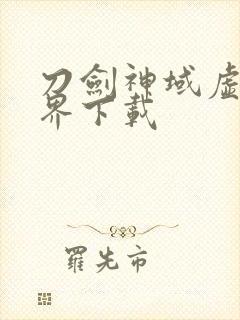 刀劍神域虛
界下載
羅先市